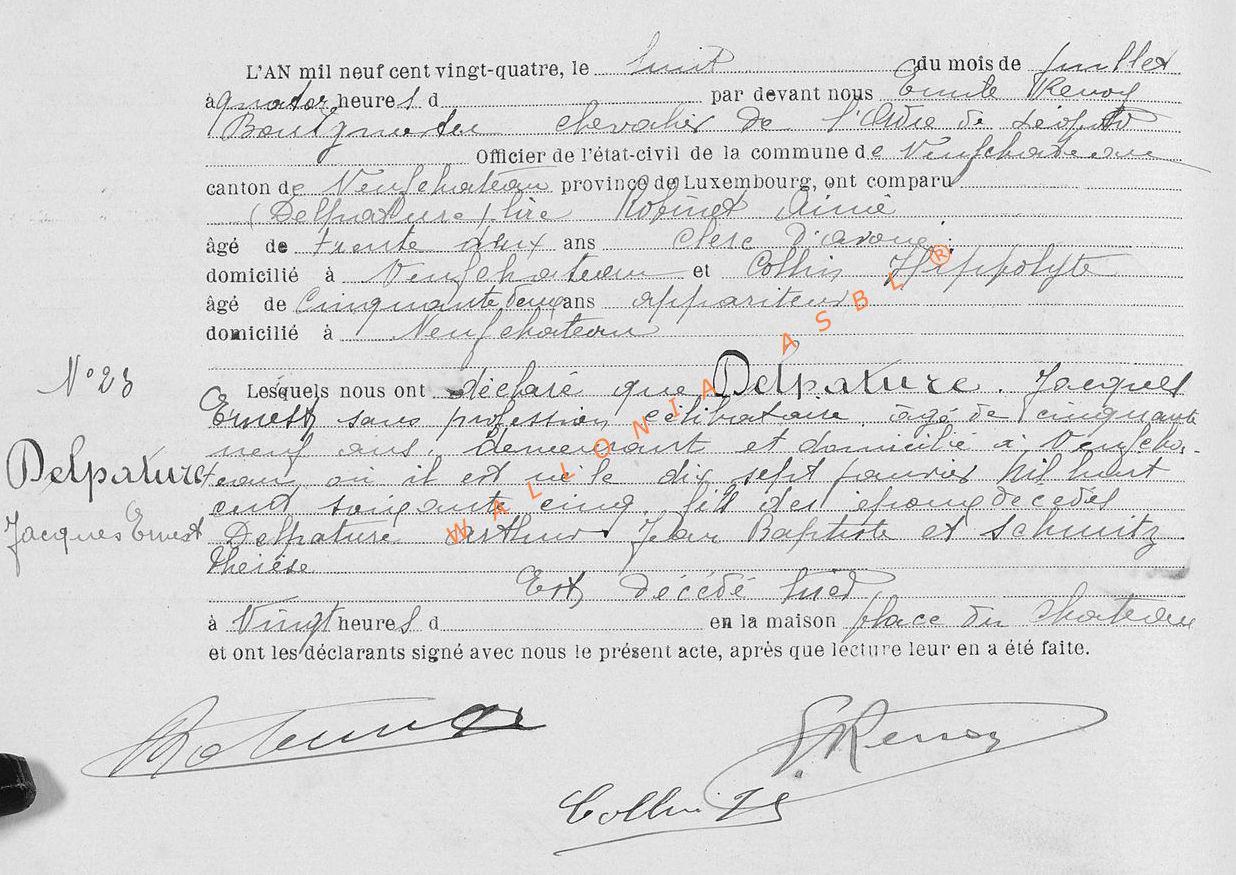 L'AN mil neuf cent vingt-quatre, le huit du mois de juillet
à quatorze heures d par devant nous Emile Renoy
Bourgmestre chevalier de l'Ordre de Léopold
Officier de l'état-civil de la commune de Neufchateau
canton de Neufchateau province de Luxembourg, ont comparu
(Delpature) lire Robinet Aimé
âgé de trente deux ans clerc d'avoué
domicilié à Neufchateau et Collin Hippolyte
âgé de Cinquante deux ans appariteur
domicilié à Neufchateau
N° 23
Lesquels nous ont déclaré que Delpature. Jacques
Ernest sans profession, célibataire, âgé de cinquante
neuf ans, demeurant et domicilié à Neufcha-
Delpature
teau, où il est né le dix sept janvier Mil huit
cent soixante cinq, fils des époux décédés
Jacques Ernest
Delpature Arthur Jean Baptiste et Schmitz
Thérèse
Est décédé hier
à Vingt heures d en la maison place du Chateau
et ont les déclarants signé avec nous le présent acte, après que lecture leur en a été faite.
E Renoy
Collin
WALLONIA ASBL ®